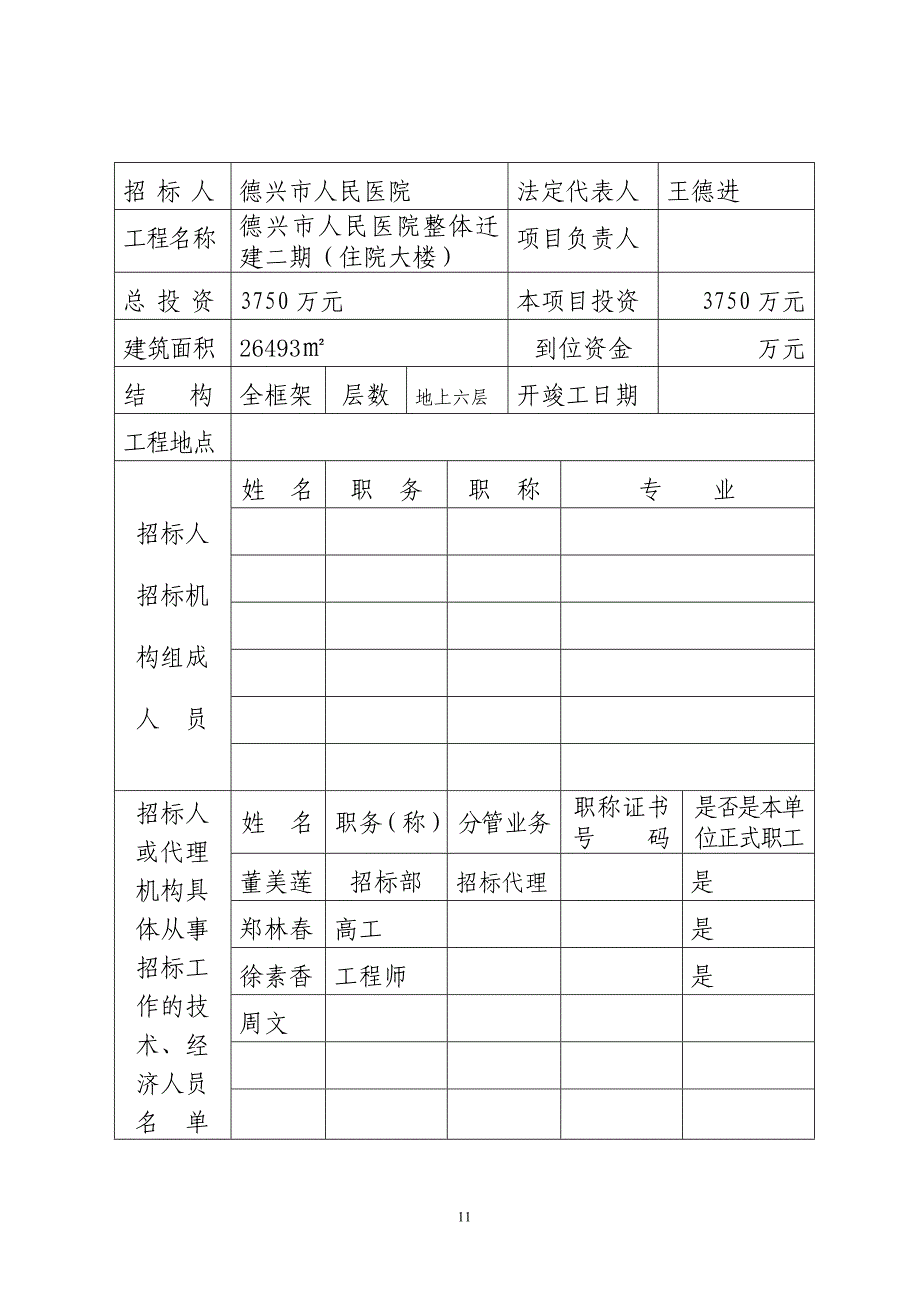 招标人 德兴市人民医院 法定代表人 王德进
工程名称 德兴市人民医院整体迁 项目负责人
建二期（住院大楼）
总投资 3750万元 本项目投资 3750万元
建筑面积 26493㎡ 到位资金 万元
结构 全框架 层数 地上六层 开竣工日期
工程地点
姓名 职务 职称 专业
招标人
招标机
构组成
人员
招标人
或代理
机构具
体从事
招标工
作的技
术、经
济人员
名单
姓名 职务(称) 分管业务 职称证书 是否是本单
号码 位正式职工
董美莲 招标部 招标代理 是
郑林春 高工 是
徐素香 工程师 是
周文
11